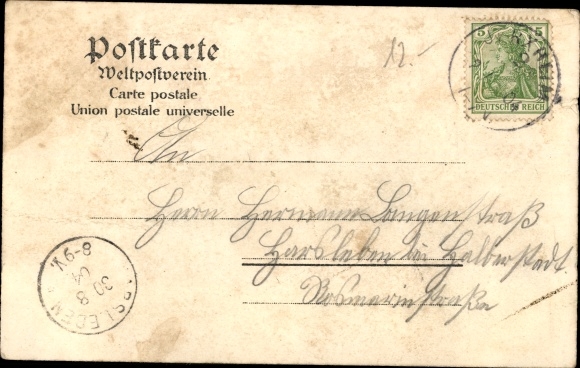 Postkarte
Weltpostverein
Carte postale
Union postale universelle
12.-
5 5
DEUTSCHES REICH
An
Herrn Hermann Langenstraß
Harsleben bei Halberstadt.
Rosmarinstraße
8-9V.
30 8 04